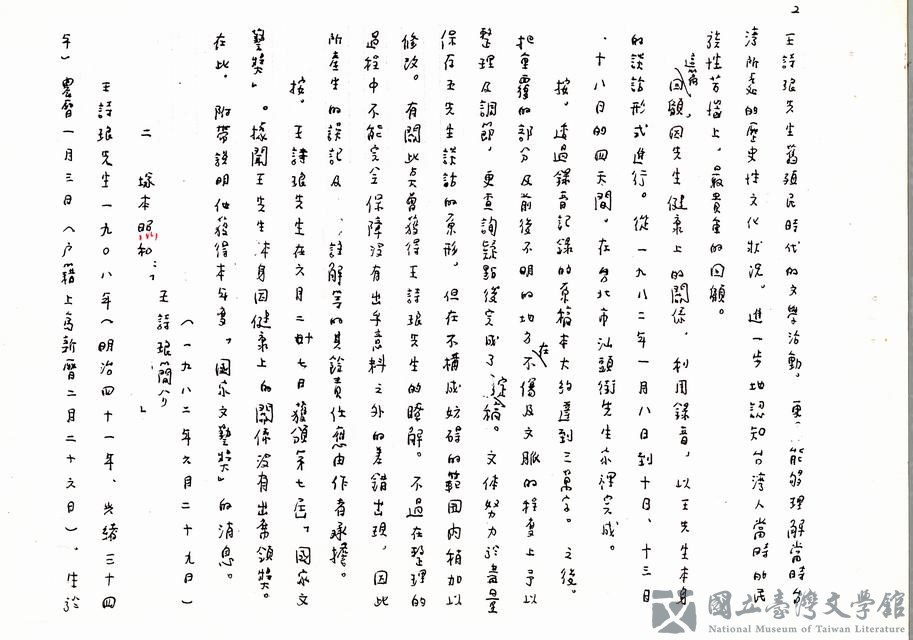 2
王詩琅先生舊殖民時代的文學活動，更能够理解當時台
湾所處的歷史性文化狀況，進一步地認知台湾人當時的民
族性苦惱上，最貴重的回顧。
這篇回顧，因先生健康上的關係，利用錄音，以王先生本身
的談話形式進行。從一九八二年一月八日到十日、十三日
、十八日的四天間，在台北市汕頭街先生家裡完成。
按，透過錄音記錄的原稿本大約達到三萬字。之後，
把重覆的部分及前後不明的地方在不傷及文脈的程度上予以
整理及調節，更查詢疑點後完成了定稿。文体努力於盡量
保存王先生談話的原形，但在不構成妨碍的範囲內稍加以
修改。有關此点曾獲得王詩琅先生的瞭解。不過在整理的
過程中不能完全保障没有出乎意料之外的差錯出現，因此
所產生的誤記及註解等的其餘責任應由作者承擔。
按，王詩琅先生在六月二十七日獲頒第七屆「國家文
藝獎」。據聞王先生本身因健康上的關係没有出席領獎。
在此，附帶說明他獲得本年度「國家文藝獎」的消息。
（一九八二年六月二十九日）
二 塚本照和：「王詩琅簡介」
王詩琅先生一九〇八年（明治四十一年、光緒三十四
年）農曆一月三日（戶籍上為新曆二月二十六日），生於
國立臺灣文學館
National Museum of Taiwan Literature